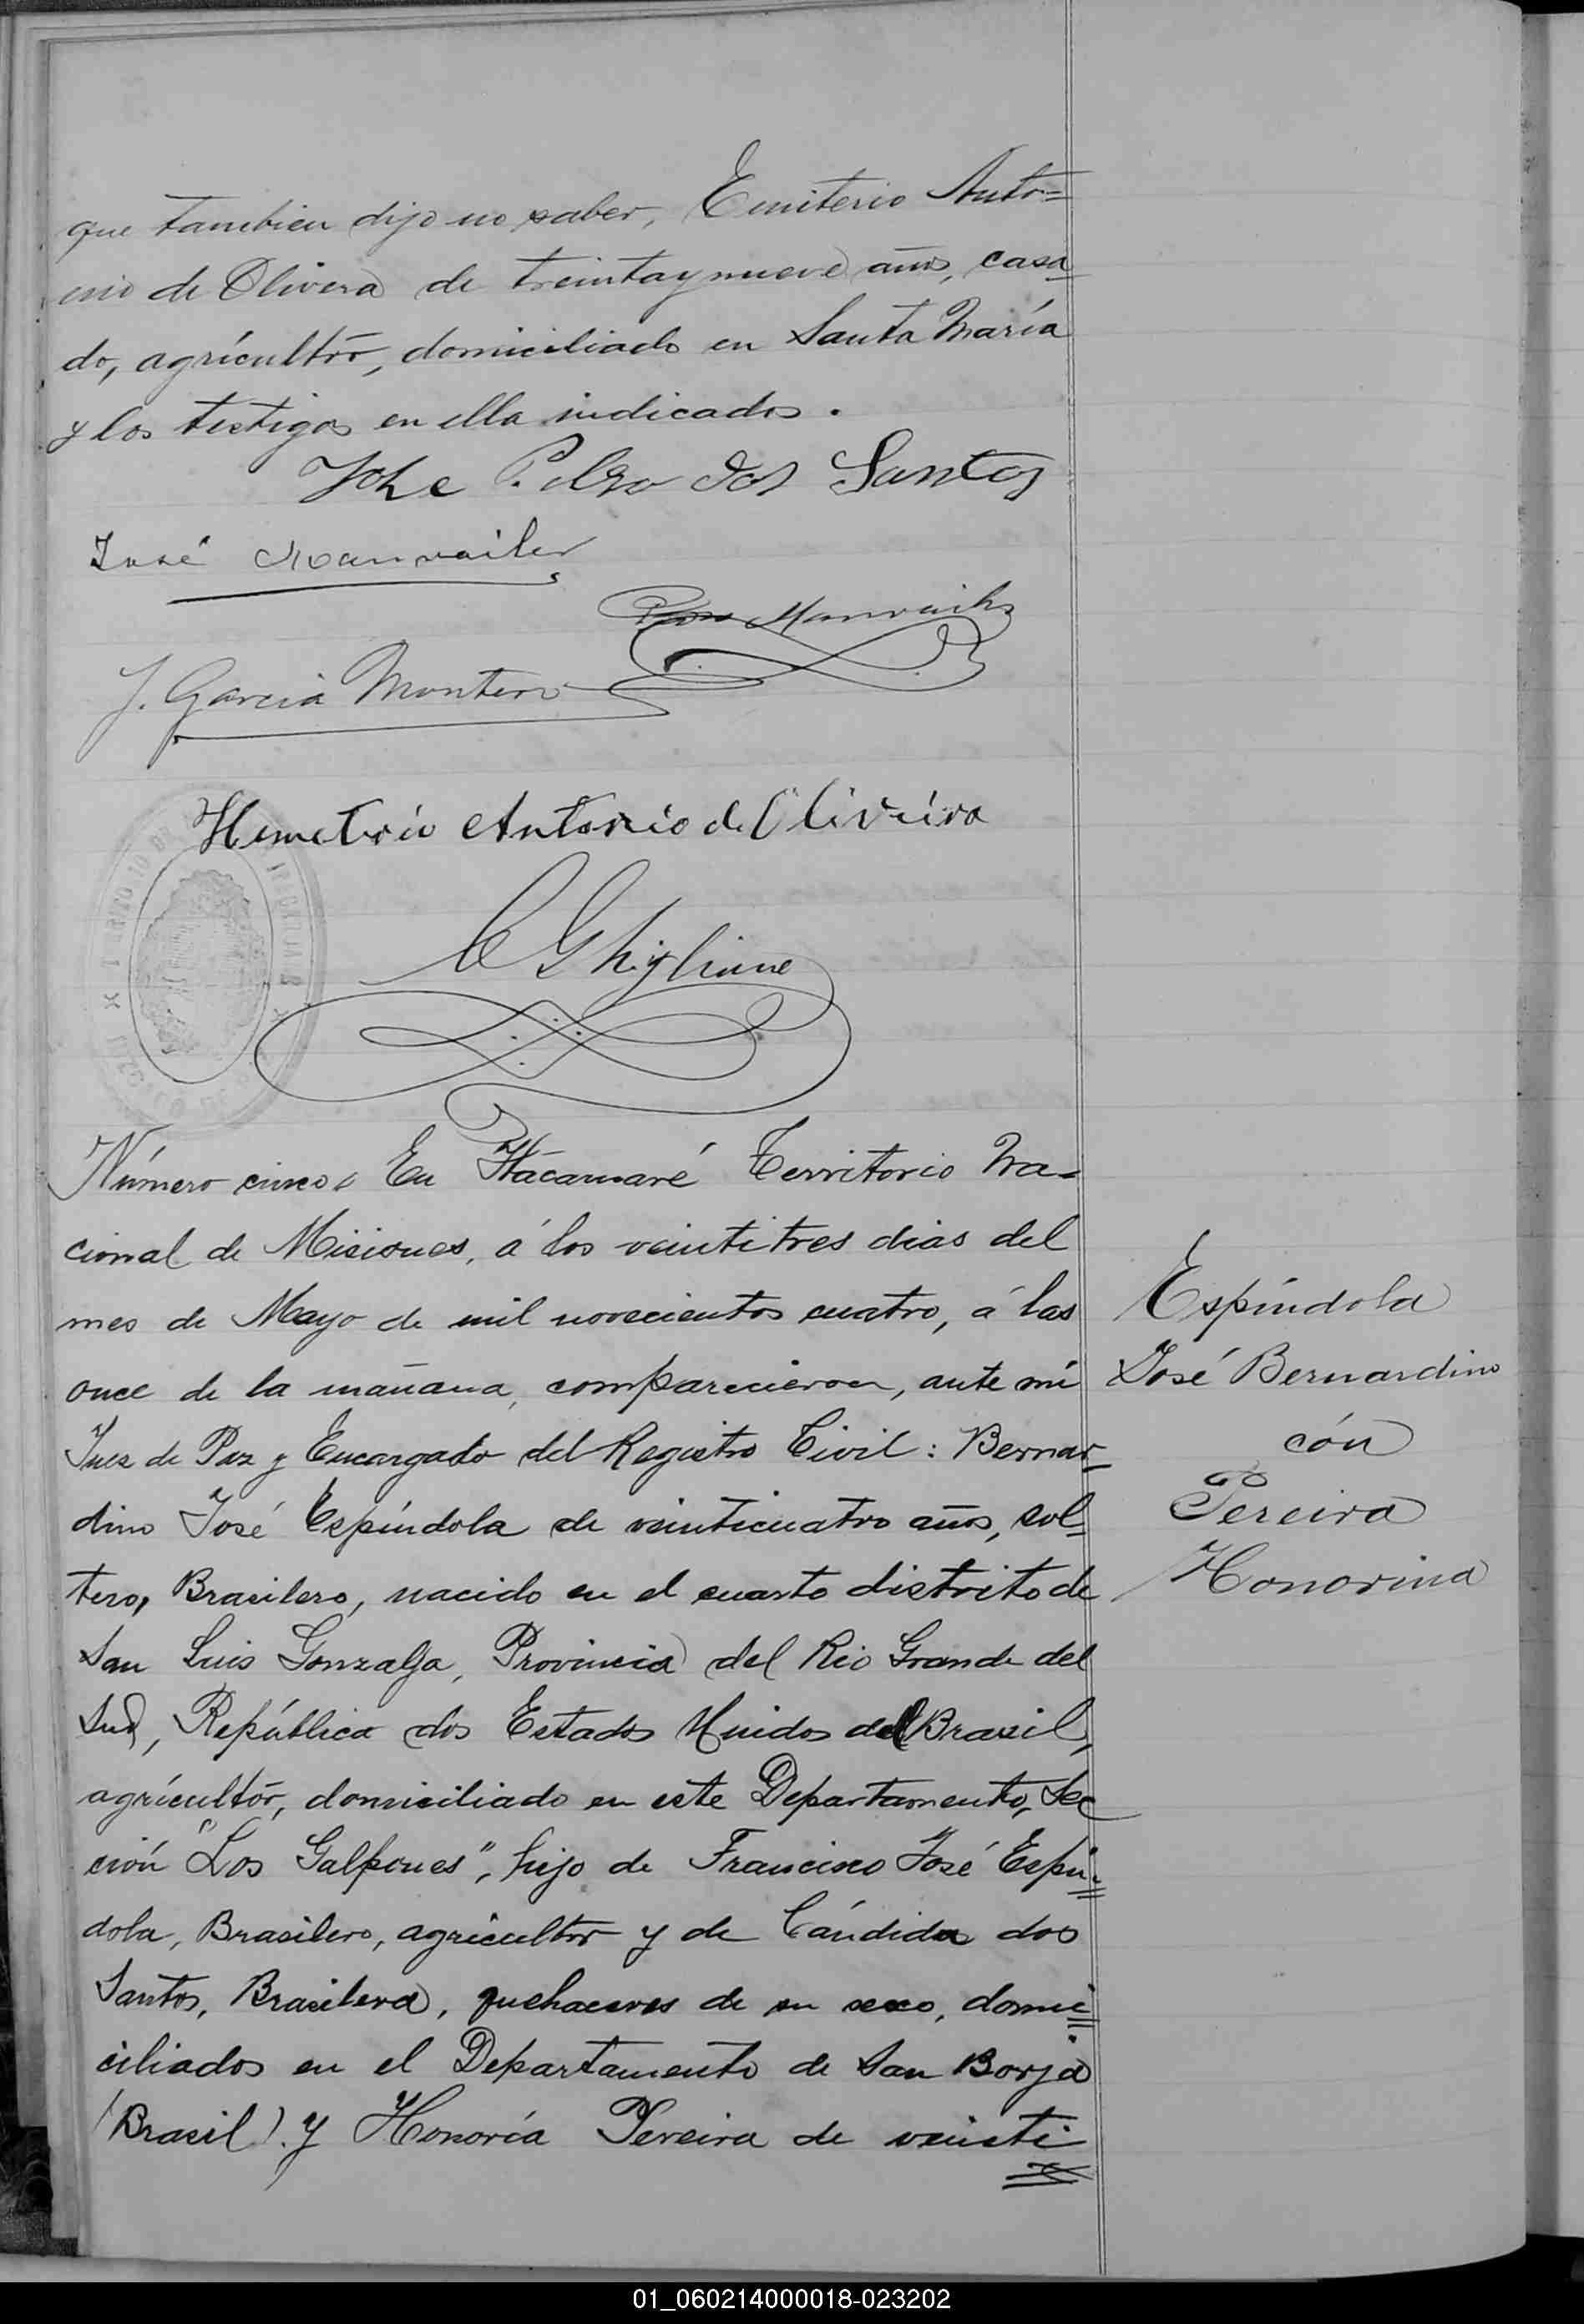 que tambien dijo no saber, Emiterio Anto=
nio de Olivera de treintaynueve años, casa
do, agrícultor, domiciliado en Santa María
y los testigos en ella indicados.
Jose Pedro dos Santos
José Manvailer
Manvailer
J. Garcia Montero
Hemetrio Antonio de Oliveira
Ghiglione
Número cinco En Itacaruaré Territorio Na-
cional de Misiones, á los veintitres dias del
mes de Mayo de mil novecientos cuatro, á las
once de la mañana, comparecieron, ante mí
Juez de Paz y Encargado del Registro Civil: Bernar=
dino José Espíndola de veinticuatro años, sol=
tero, Brasilero, nacido en el cuarto distrito de
San Luis Gonzalga, Provincia del Rio Grande del
Sud, República dos Estados Unidos del Brazil,
agrícultor, domiciliado en este Departamento, Sec
ción "Los Galpones", hijo de Francisco José Espín=
dola, Brasilero, agricultor y de Cándida dos
Santos, Brasilera, quehaceres de su sexo, domi=
ciliados en el Departamento de San Borja
(Brasil). Y Honoría Pereira de veinti
Espíndola
José Bernardino
cón
Pereira
Honorina
01_060214000018-023202